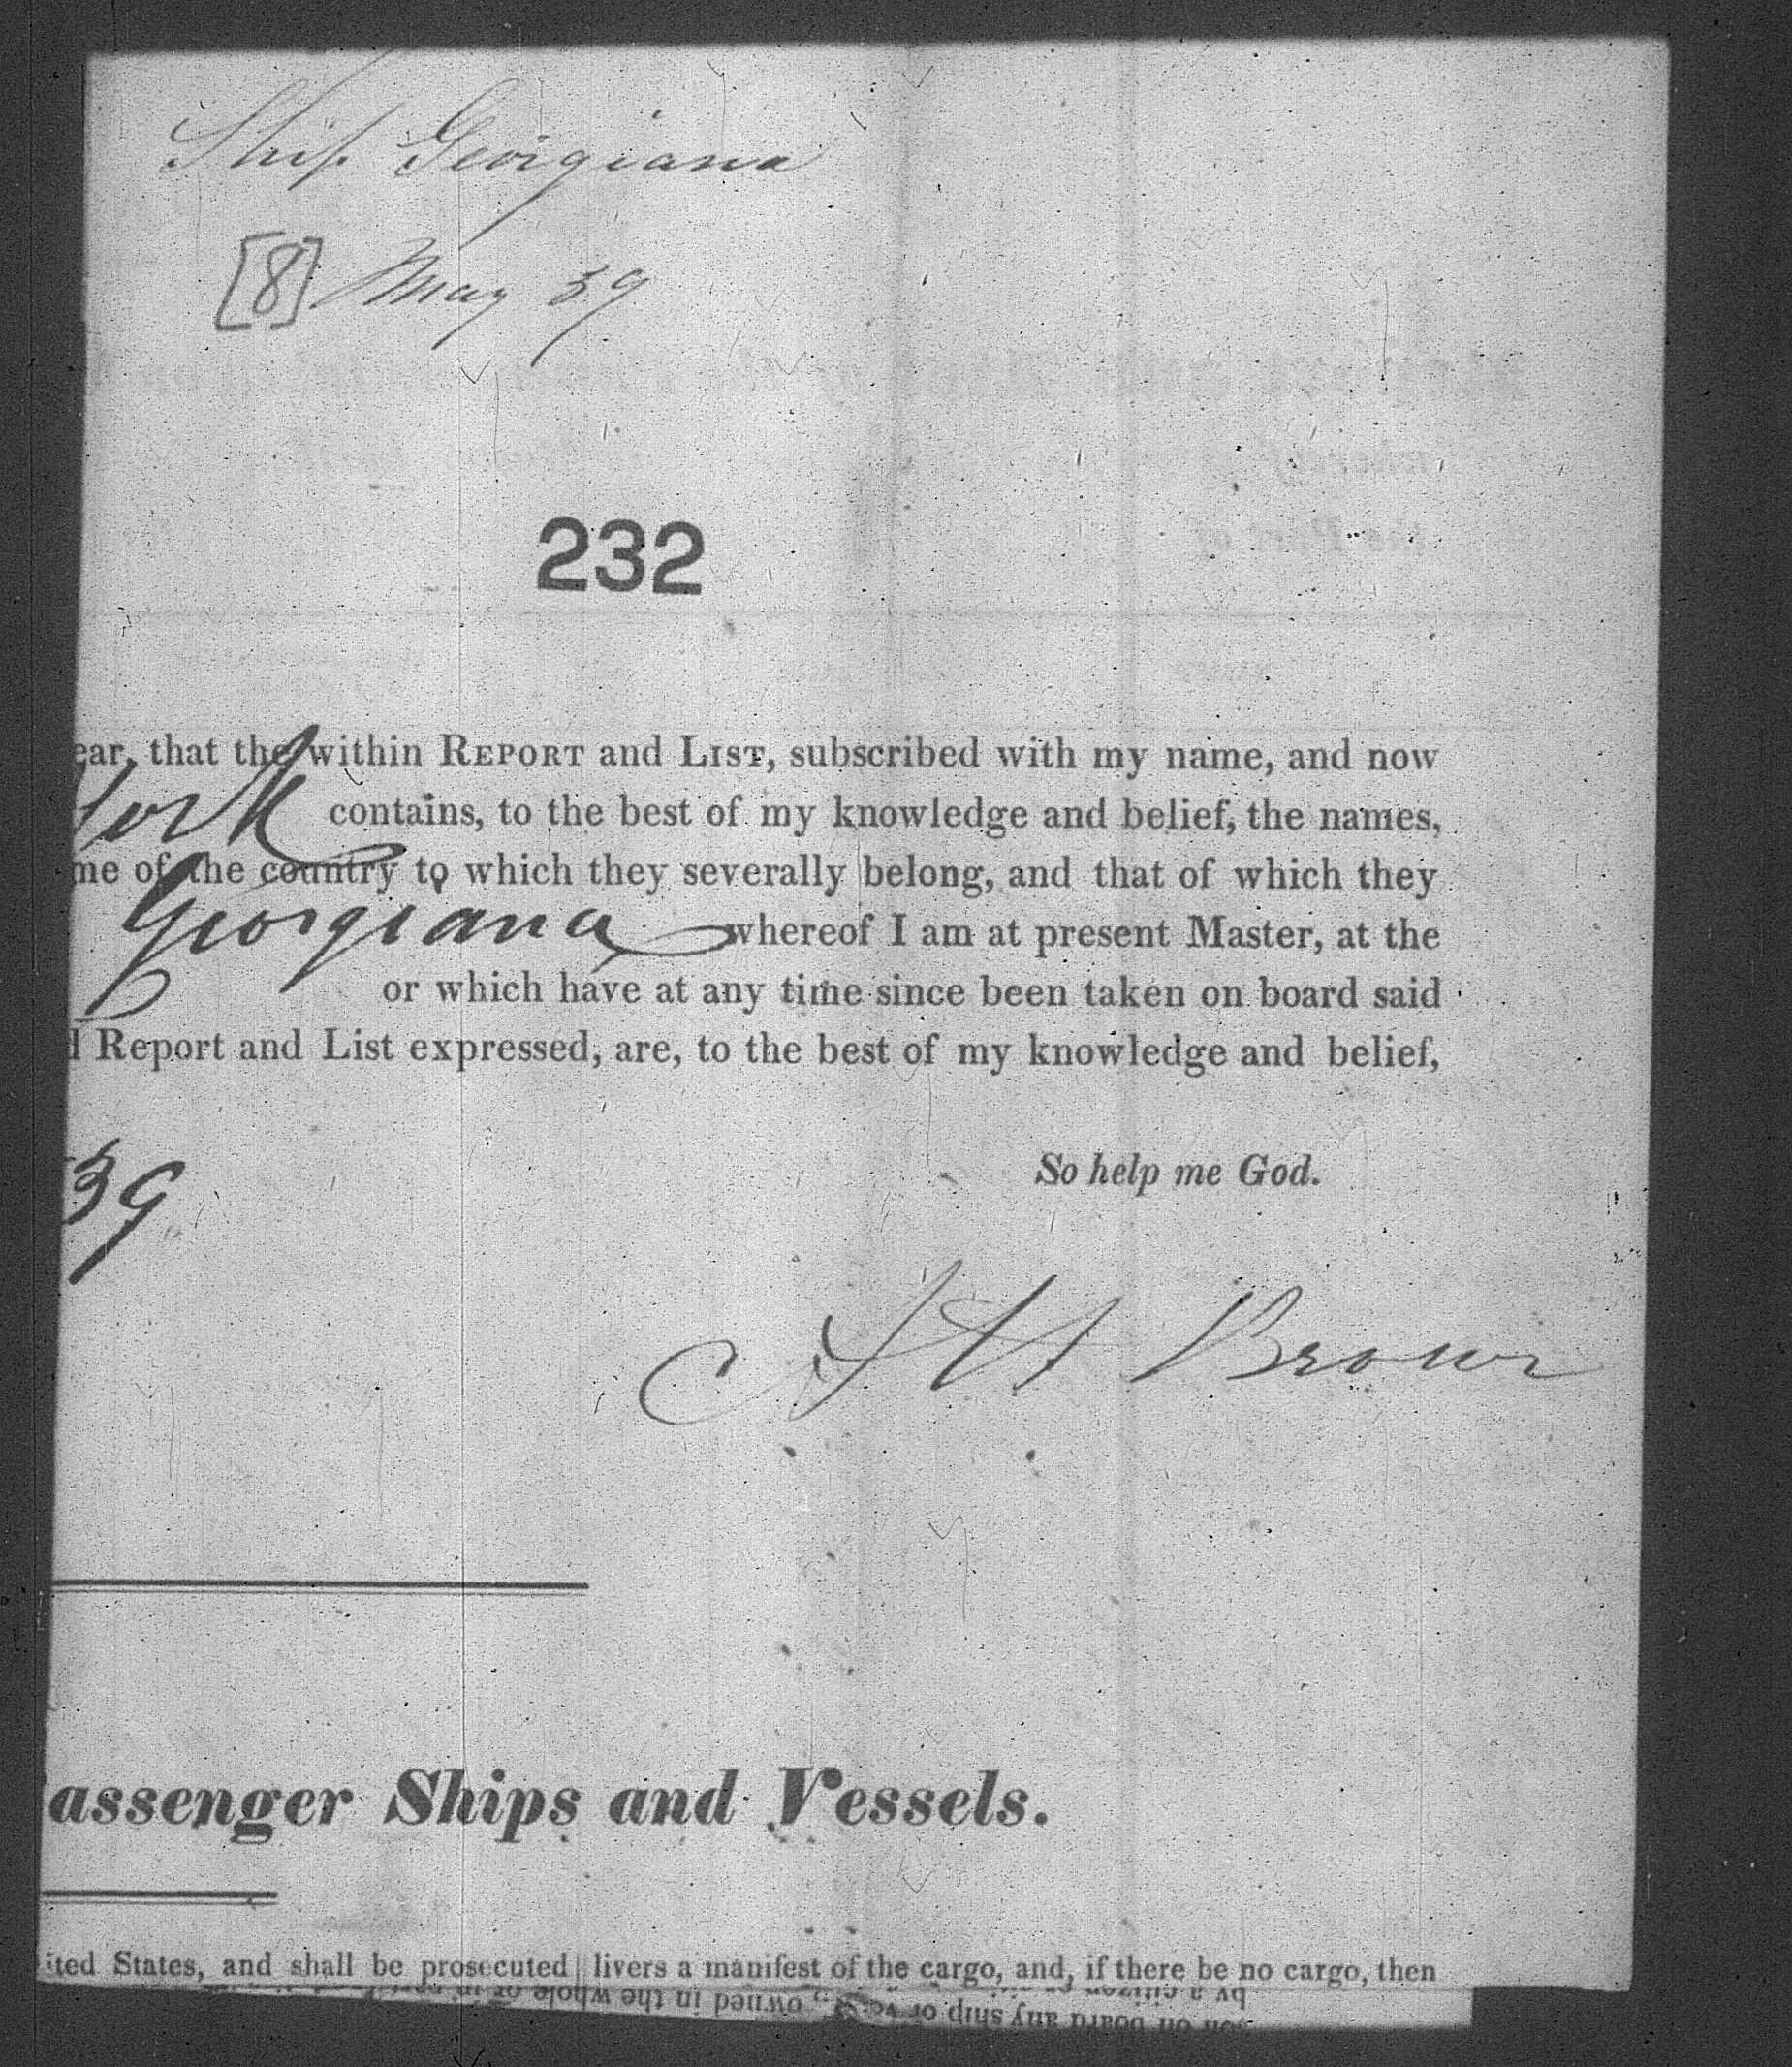 Ship Georgiana
[8] May 39
232
ear, that the within REPORT and LIST, subscribed with my name, and now
York contains, to the best of my knowledge and belief, the names,
me of the country to which they severally belong, and that of which they
Georgiana whereof I am at present Master, at the
or which have at any time since been taken on board said
d Report and List expressed, are, to the best of my knowledge and belief,
39
So help me God.
H Brown
assenger Ships and Vessels.
ited States, and shall be prosecuted livers a manifest of the cargo, and, if there be no cargo, then
by a citizen
owned in the whole or in
on board any ship or